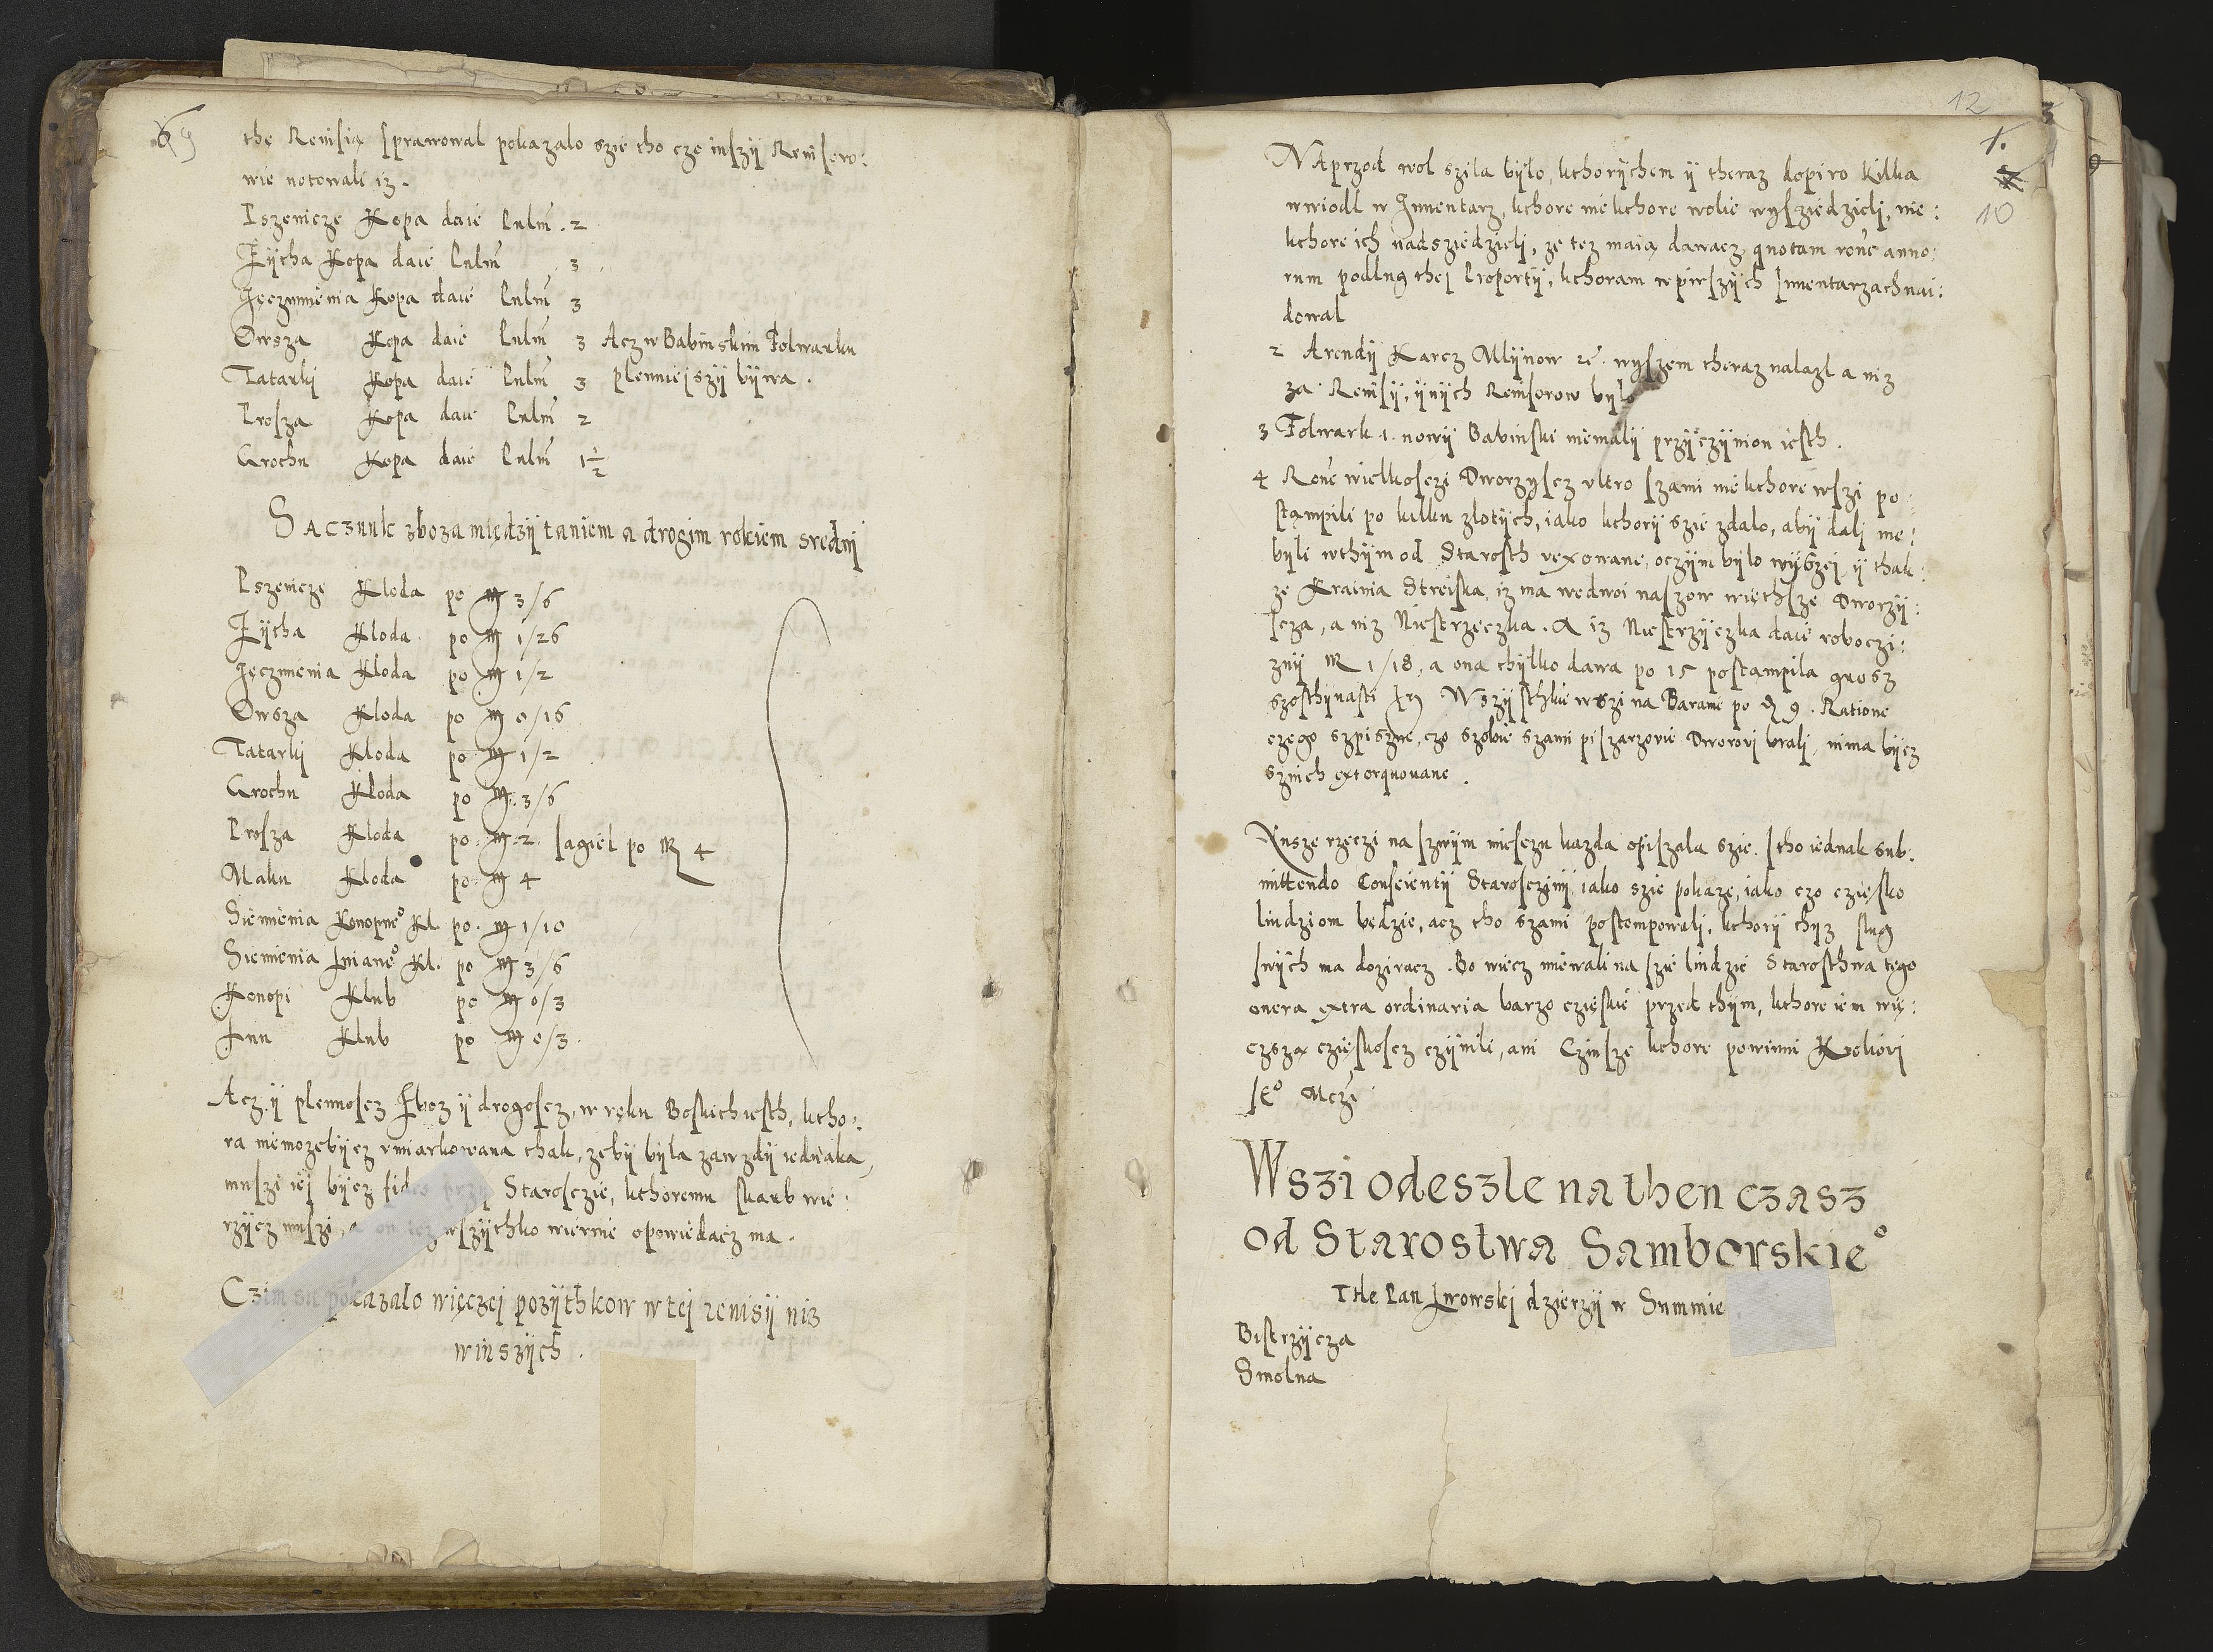 69
thę Revisią sprawowal pokazalo szie tho czo inszÿ Revisoro:
wie notowali iz.
Pszenicze Kopa daie Culm. 2
Zÿtha Kopa daie Culm 3
Jęczmienia Kopa daie Culm 3
Owsza Kopa daie Culm 3 Acz w Babinskim Folwarku
Tatarki Kopa daie Culm 3 plennieiszÿ bÿwa.
Prosza Kopa daie Culm 2
Grochu Kopa daie Culm 1½
Saczunk zboza międzÿ taniem a drogim rokiem srednÿ
Pszenicze Kloda po m 3/6
Zÿtha Kloda po m 1/26
Jęczmienia Kloda po m 1/2
Owsza Kloda po m 0/16
Tatarki Kloda po m 1/2
Grochu Kloda po m 3/6
Prosza Kloda po m 2 Jagiel po m 4
Maku Kloda po m 4
Siemienia Konopneo Kl. po m 1/10
Siemienia Lnianeo Kl. po m 3/6
Konopi Klub po m 0/3
Lnu Klub po m 0/3.
Acz ÿ plennoscz Zboz ÿ drogoscz, w ręku Boskich iesth, ktho:
ra niemoze bÿcz vmiarkowana thak, zebÿ bÿla zawzdÿ iednaka,
muszi iei bÿcz fides przÿ Starosczie, kthoremu skarb wie:
rzÿcz muszi, a on tez wszÿthko wiernie opowiedacz ma.
Czim sie pokazalo więczei pozÿthkow w tei revisÿ niz
w inszÿch.
12
1.
10
NAprzod wol szila bÿlo, kthorÿchem ÿ theraz dopiro kilka
wwiodl w Inuentarz, kthore niekthore wolie wÿsziedzieli, nie:
kthore ich nadsziedzieli, ze tez maią dawacz quotam rone anno:
rum podlug thei Proportÿ, kthoram w pirszÿch Inuentarzach nai:
dowal
2 Arendÿ Karcz Mlÿnow etc. wÿszem theraz nalazl a niz
za Revisÿ, ÿnÿch Reuisorow bÿlo
3 Folwark 1. nowÿ Babinski niemalÿ przÿczÿnion iesth.
4 Rone wielkosczi Dworzÿscz vltro szami niekthore wszi po:
stąmpili po kilku zlotÿch, iako kthorÿ szie zdalo, abÿ dali nie:
bÿli wthÿm od Starosth vexowane, o czÿm bÿlo wÿßzei. ÿ thak:
ze Kraina Streiska, iz ma wedwoi naszow więthsze Dworzÿ:
scza, a niz Niestrzeczka. A iz Niestrzÿczka daie roboczi:
znÿ m 1/18, a ona thÿlko dawa po 15 postąmpila grosz
szosthÿnasti Wszÿsthkie wszi na Barame po 9. Ratione
czego szpiszne, czo szobie szami piszarzowie Dworovi brali, nima bÿcz
sznich extorquowane.
Ynsze rzeczi na szwÿm mieszczu kazda opiszala szie. I tho iednak sub:
mittendo Conscientÿ Starosczinÿ, iako szie pokaze, iako czo cziesko
liudziom będzie, acz tho szami postempowali, kthorÿ thÿz slug
swÿch ma doziracz. Bo wiecz miewali na szie liudzie Starosthwa tego
onera extra ordinaria barzo czięskie przed thÿm, kthore iem wię:
czszą czieskoscz czÿnili, ani Czinsze kthore powinni Krolioui
Jeo Mczi
Wszi odeszle na then czasz
od Starostwa Samborskieo
The Pan Lwowskÿ dzierzÿ w Summie
Bistrzÿcza
Smolna